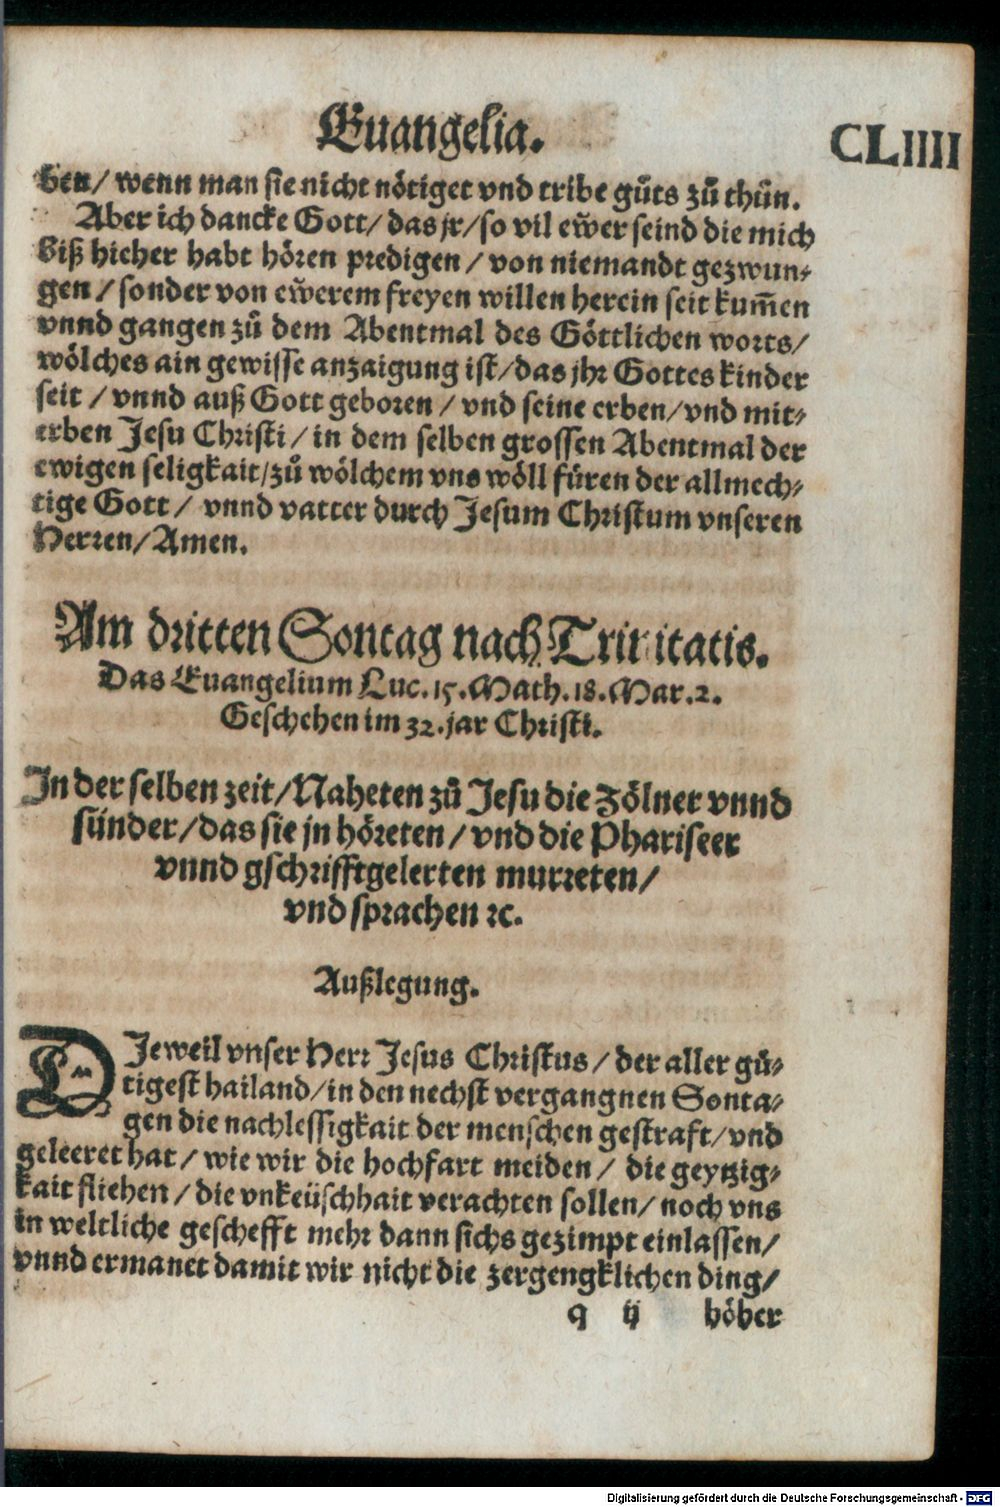 Euangelia.
CLIIII
ben/ wenn man sie nicht nötiget vnd tribe gůts zů thůn.
Aber ich dancke Gott/ das jr/ so vil eẅer seind die mich
biß hieher habt hören predigen/ von niemandt gezwun⸗
gen/ sonder von eẅerem freyen willen herein seit kum̄en
vnnd gangen zů dem Abentmal des Göttlichen worts/
wölches ain gewisse anzaigung ist/ das jhr Gottes kinder
seit/ vnnd auß Gott geboren/ vnd seine erben/ vnd mit⸗
erben Jesu Christi/ in dem selben grossen Abentmal der
ewigen seligkait/ zů wölchem vns wöll füren der allmech⸗
tige Gott/ vnnd vatter durch Jesum Christum vnseren
Herren/ Amen.
Am dritten Sontag nach Trinitatis.
Das Euangelium Luc. 15. Math. 18. Mar. 2.
Geschehen im 32. jar Christi.
In der selben zeit/ Naheten zů Jesu die Zölner vnnd
sünder/ das sie jn höreten/ vnd die Phariseer
vnnd gschrifftgelerten murreten/
vnd sprachen ꝛc.
Außlegung.
DJeweil vnser Herr Jesus Christus/ der aller gü⸗
tigest hailand/ in den nechst vergangnen Sonta⸗
gen die nachlessigkait der menschen gestraft/ vnd
geleeret hat/ wie wir die hochfart meiden/ die geytzig⸗
kait fliehen/ die vnkeüschhait verachten sollen/ noch vns
in weltliche geschefft mehr dann sichs gezimpt einlassen/
vnnd ermanet damit wir nicht die zergengklichen ding/
q ij höher
Digitalisierung gefördert durch die Deutsche Forschungsgemeinschaft - DFG